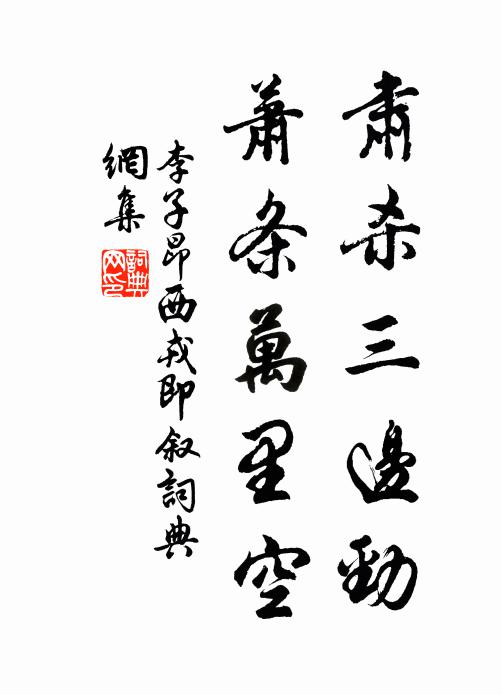 肅杀三邊勁
蕭条萬里空
李子昂西戎即叙詞典
網集
詞典
网印